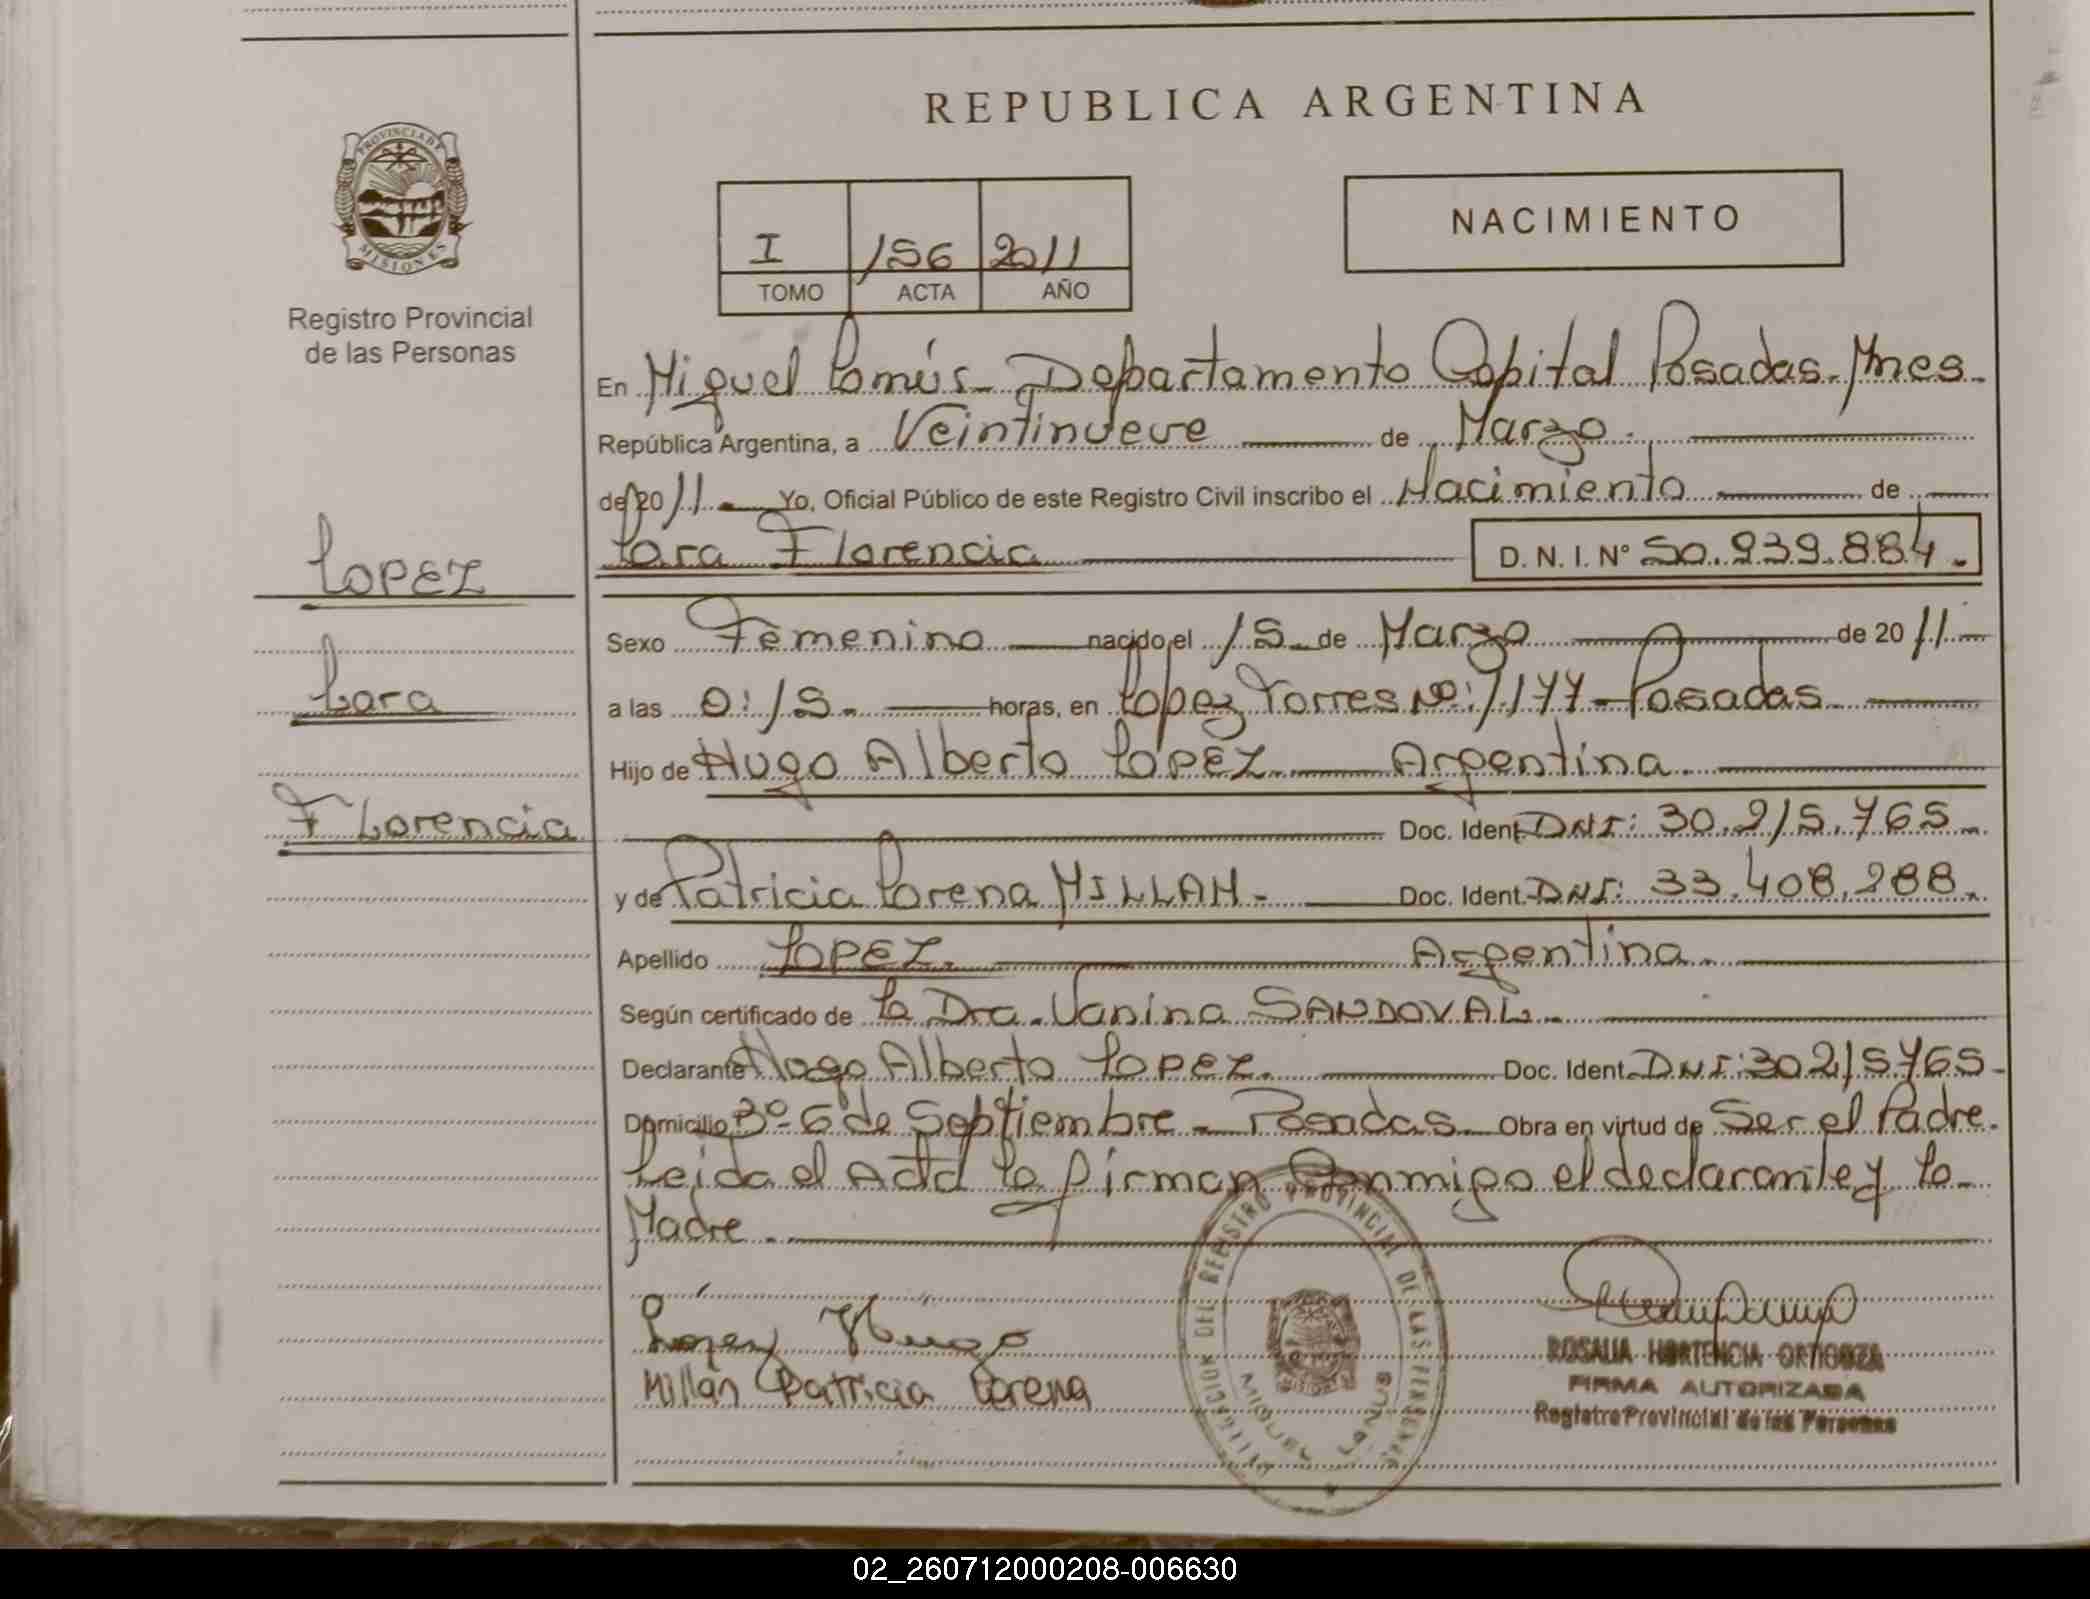 REPUBLICA ARGENTINA
PROVINCIA DE
MISIONES
Registro Provincial
de las Personas
NACIMIENTO
I 156 2011
TOMO ACTA AÑO
En Miguel Lanús - Departamento Capital Posadas - Mnes.
República Argentina, a Veintinueve de Marzo.
de 2011. Yo, Oficial Público de este Registro Civil inscribo el Nacimiento de
Lara Florencia D. N. I. N° 50.939.884.
LOPEZ
Lara
Florencia
Sexo Femenino nacido el 15 de Marzo de 2011
a las 0:15. horas, en Lopez Torres Nº: 1177 - Posadas.
Hijo de Hugo Alberto LOPEZ. Argentina.
Doc. Ident. DNI: 30.215.765.
y de Patricia Lorena MILLAN. Doc. Ident. DNI: 33.408.288.
Apellido LOPEZ. Argentina.
Según certificado de La Dra. Vanina SANDOVAL.
Declarante Hugo Alberto LOPEZ. Doc. Ident. DNI: 30215765-
Domicilio Bº- 6 de Septiembre - Posadas. Obra en virtud de Ser el Padre.
Leida el Acta la firman Conmigo el declarante y la
Madre.
López Hugo
Millán Patricia Lorena
DELEGACION DEL REGISTRO PROVINCIAL DE LAS PERSONAS
MIGUEL LANUS
ROSALIA HORTENCIA ORTIGOZA
FIRMA AUTORIZADA
Registro Provincial de las Personas
02_260712000208-006630